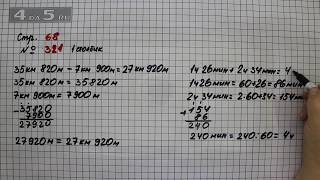 4AD5.RU
Стр. 68
№ 321 1 столбик
35км 820м - 7км 900м = 27км 920м
35км 820м = 35820м
7км 900м = 7900м
35820
7900
27920
27920м = 27км 920м
1ч 26мин + 2ч 34мин = 4
1ч 26мин = 60+26 = 86мин
2ч 34мин = 2·60+34 = 154мин
+154
86
240
240мин = 240:60 = 4ч